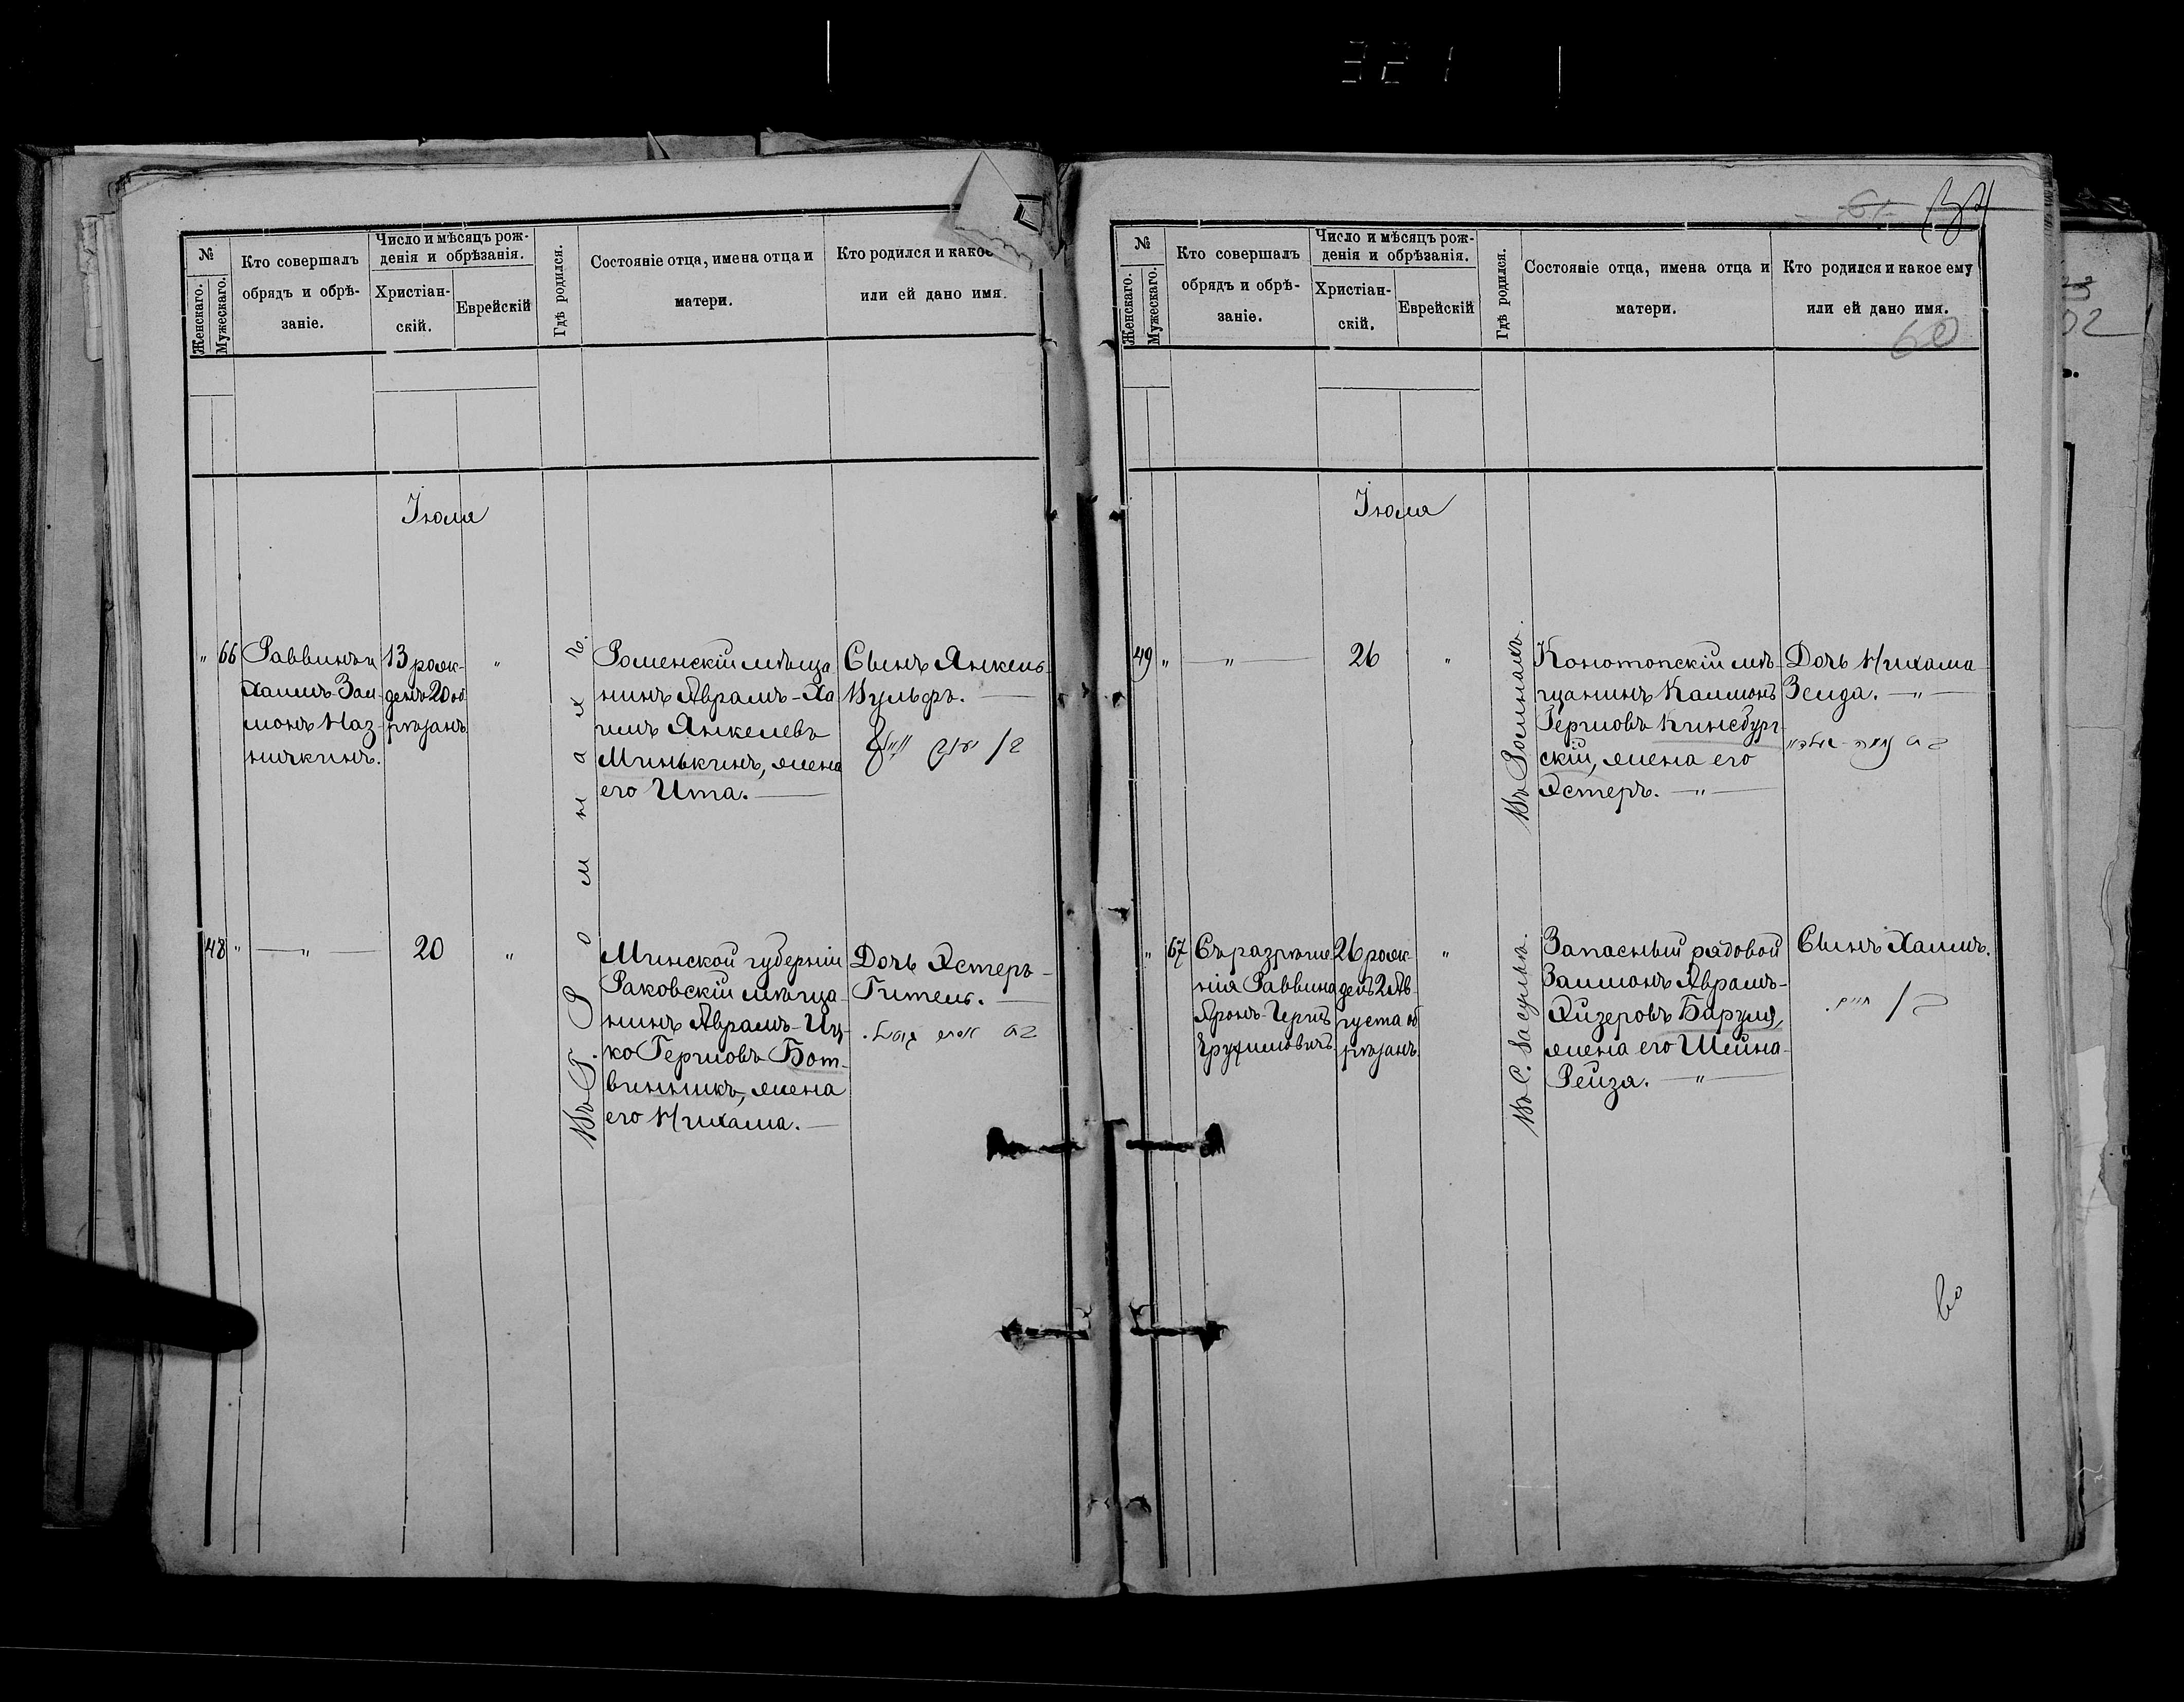 321
№
Женскаго.
Мужескаго.
Кто совершалъ
обрядъ и обрѣ-
заніе.
Число и мѣсяцъ рож-
денія и обрѣзанія.
Христіан-
скій.
Еврейскій
Гдѣ родился.
Состояніе отца, имена отца и
матери.
Кто родился и какое
или ей дано имя.
Іюля
" 66
Раввинъ и
Хаимъ Зал-
монъ Наз-
ничкинъ.
13 рож-
денъ 20 об
рѣзанъ
"
Въ Г. Ромнахъ.
Роменскій мѣща
нинъ Аврамъ-Ха
имъ Янкелевъ
Минькинъ, жена
его Ита.
Сынъ Янкель-
Вульфъ.
48 "
"
20
"
Минской губерніи
Раковскій мѣща-
нинъ Аврамъ-Иц-
ко Гершовъ Бот-
винникъ, жена
его Нихама.
Дочь Эстеръ-
Гитель.
61
60
№
Женскаго.
Мужескаго.
Кто совершалъ
обрядъ и обрѣ-
заніе.
Число и мѣсяцъ рож-
денія и обрѣзанія.
Христіан-
скій.
Еврейскій
Гдѣ родился.
Состояніе отца, имена отца и
матери.
Кто родился и какое ему
или ей дано имя.
Іюля
49 "
"
26
"
Въ Ромнахъ.
Конотопскій мѣ-
щанинъ Калмонъ
Гершовъ Кинсбург-
скій, жена его
Эстеръ. "
Дочь Нихама
Зелда. "
" 67
Съ разрѣше
нія Раввина
Аронъ-Герша
26 рож-
денъ 2 Ав-
густа об
рѣзанъ
"
Въ С. Засулье.
Запасный рядовой
Залмонъ Аврамъ-
Эйзеровъ Барзуля,
жена его Шейна-
Рейза. "
Сынъ Хаимъ.
חיים
60